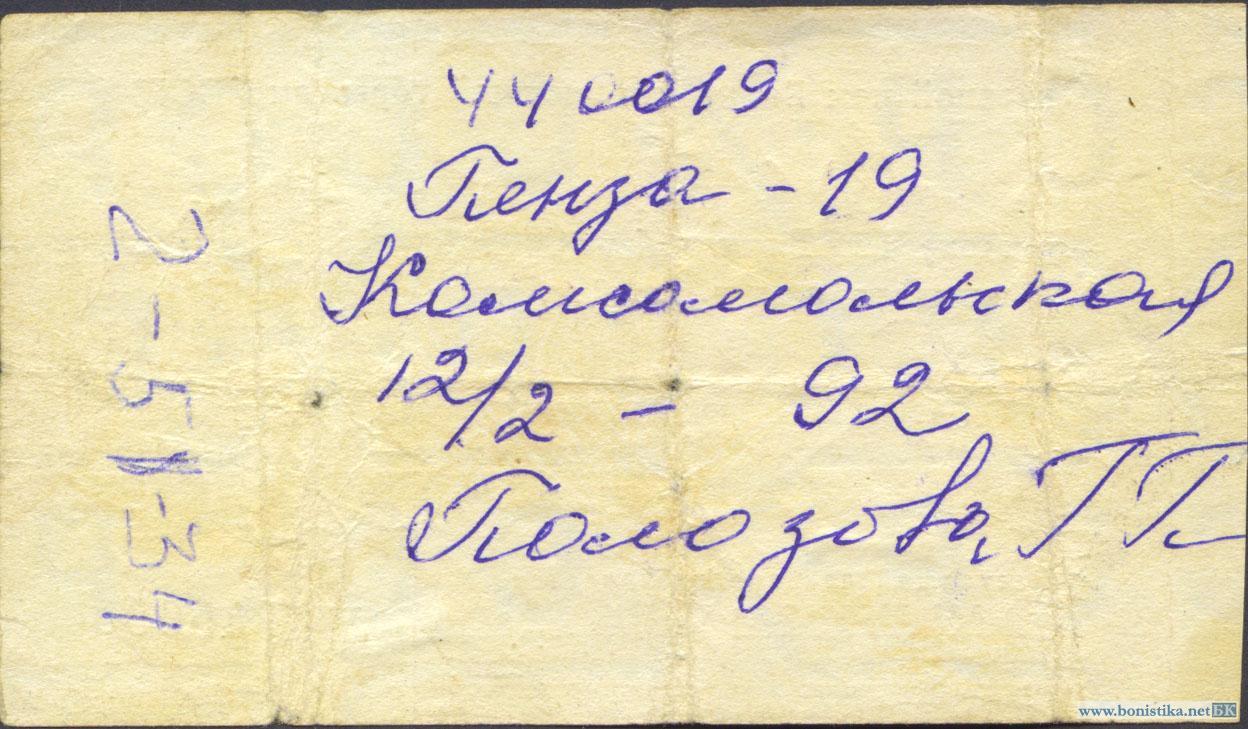 440019
Пенза - 19
Комсомольская
12/2 - 92
Полозова, Г П
2-51-34
www.bonistika.net БК